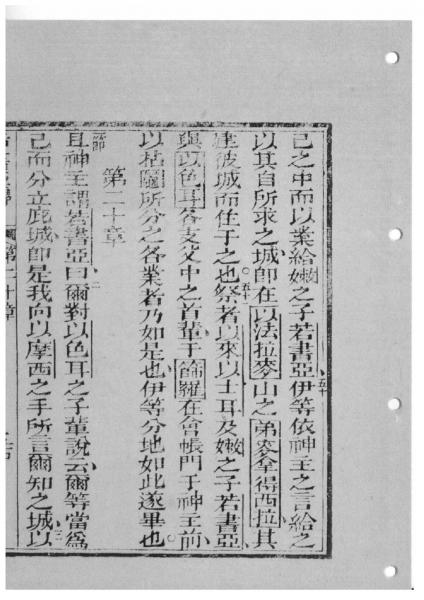 己之中而以業給嫩之子若書亞五十伊等依神主之言給之
以其自所求之城即在以法拉麥山之弟麥拿得西拉其
建彼城而住于之也五十一祭者以來以士耳及嫩之子若書亞
與以色耳各支父中之首輩于篩羅在會帳門于神主前
以拈鬮所分之各業者乃如是也伊等分地如此遂畢也
第二十章
一節且神主謂若書亞曰二爾對以色耳之子輩說云爾等當為
己而分立庇城即是我向以摩西之手所言爾知之城三以
第二十章